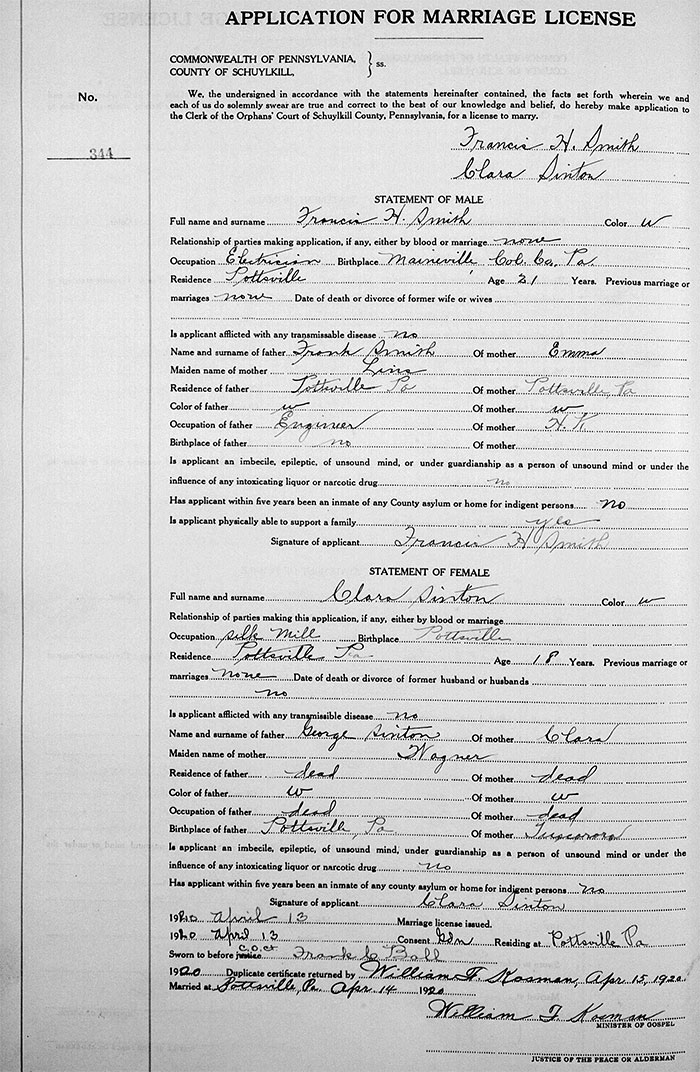 APPLICATION FOR MARRIAGE LICENSE
COMMONWEALTH OF PENNSYLVANIA,
COUNTY OF SCHUYLKILL, } ss.
No.
344
We, the undersigned in accordance with the statements hereinafter contained, the facts set forth wherein we and
each of us do solemnly swear are true and correct to the best of our knowledge and belief, do hereby make application to
the Clerk of the Orphans' Court of Schuylkill County, Pennsylvania, for a license to marry.
Francis H. Smith
Clara Sinton
STATEMENT OF MALE
Full name and surname Francis H. Smith Color w
Relationship of parties making application, if any, either by blood or marriage. none
Occupation Electrician Birthplace Maineville Col. Co. Pa.
Residence Pottsville Age 21 Years. Previous marriage or
marriages none Date of death or divorce of former wife or wives
Is applicant afflicted with any transmissable disease no
Name and surname of father Frank Smith Of mother Emma
Maiden name of mother Lins
Residence of father Pottsville Pa Of mother Pottsville, Pa
Color of father w Of mother w
Occupation of father Engineer Of mother H. K.
Birthplace of father no Of mother
Is applicant an imbecile, epileptic, of unsound mind, or under guardianship as a person of unsound mind or under the
influence of any intoxicating liquor or narcotic drug no
Has applicant within five years been an inmate of any County asylum or home for indigent persons no
Is applicant physically able to support a family yes
Signature of applicant Francis H Smith
STATEMENT OF FEMALE
Full name and surname Clara Sinton Color w
Relationship of parties making this application, if any, either by blood or marriage
Occupation silk mill Birthplace Pottsville
Residence Pottsville Pa Age 18 Years. Previous marriage or
marriages none Date of death or divorce of former husband or husbands
no
Is applicant afflicted with any transmissible disease no
Name and surname of father George Sinton Of mother Clara
Maiden name of mother Wagner
Residence of father dead Of mother dead
Color of father w Of mother w
Occupation of father dead Of mother dead
Birthplace of father Pottsville, Pa Of mother Tuscarora
Is applicant an imbecile, epileptic, of unsound mind, under guardianship as a person of unsound mind or under the
influence of any intoxicating liquor or narcotic drug no
Has applicant within five years been an inmate of any county asylum or home for indigent persons no
Signature of applicant Clara Sinton
1920 April 13 Marriage license issued.
1920 April 13 Consent Gdn Residing at Pottsville Pa
C.O.Ct
Sworn to before justice Frank C Ball
1920 Duplicate certificate returned by William F. Kosman, Apr 15, 1920
Married at Pottsville, Pa Apr. 14 1920
William F. Kosman
MINISTER OF GOSPEL
JUSTICE OF THE PEACE OR ALDERMAN